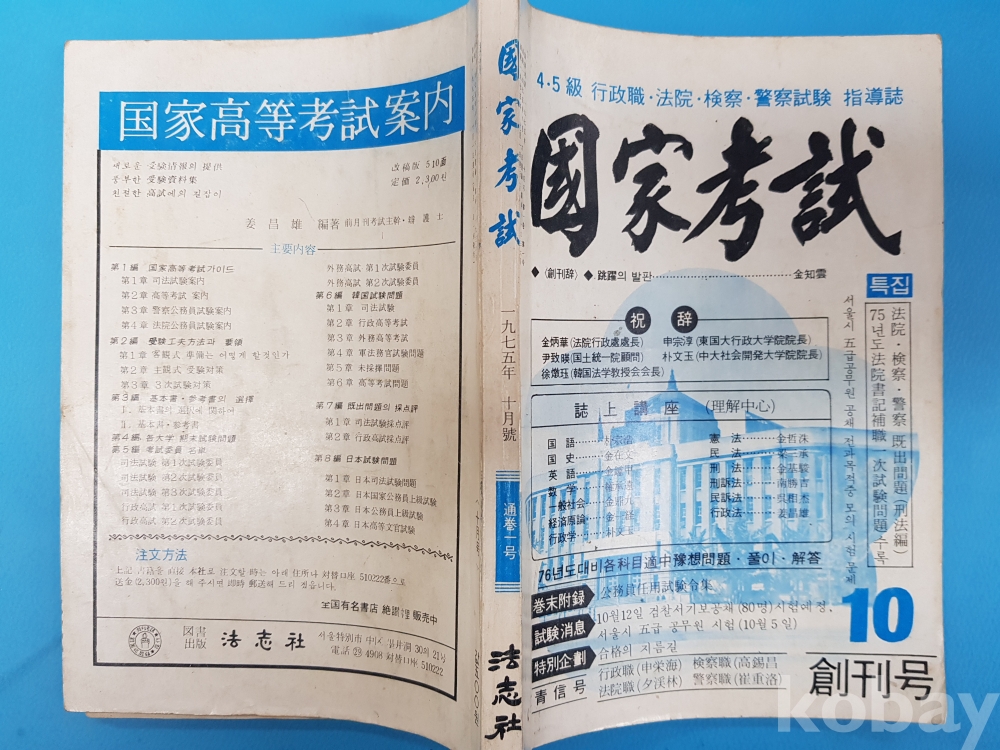 国家高等考試案内
새로운 受驗情報의 提供
풍부한 受驗資料集
친절한 高試에의 길잡이
改稿版 510面
定価 2,300원
姜昌雄 編著 前月刊考試主幹・辯護士
主要内容
第1編 国家高等考試가이드
第1章 司法試験案内
第2章 高等考試 案内
第3章 警察公務員試験案内
第4章 法院公務員試験案内
第2編 受験工夫方法과 要領
第1章 客観式 準備는 어떻게 할것인가
第2章 主観式 受験対策
第3章 3次試験対策
第3編 基本書・参考書의 選擇
Ⅰ. 基本書의 選択에 關하여
Ⅱ. 基本書・參考書
第4編 各大学 期末試験問題
第5編 考試委員 名單
司法試験 第1次試験委員
司法試験 第2次試験委員
司法試験 第3次試験委員
行政高試 第1次試験委員
行政高試 第2次試験委員
外務高試 第1次試験委員
外務高試 第2次試験委員
第6編 韓国試験問題
第1章 司法試験
第2章 行政高等考試
第3章 外務高等考試
第4章 軍法務官試験問題
第5章 未採擇問題
第6章 高等考試問題
第7編 既出問題의 採点評
第1章 司法試験採点評
第2章 行政高試採点評
第8編 日本試験問題
第1章 日本司法試験問題
第2章 日本国家公務員上級試験
第3章 日本公務員上級試験
第4章 日本高等文官試験
注文方法
上記 書籍을 直接 本社로 注文할 때는 아래 住所나 対替口座 510222番으로
送金(2,300원)을 해 주시면 即時 郵送해 드리겠읍니다.
全国有名書店 絶讃裡 販売中
図書出版 法志社
서울特別市 中区 익井洞 30의 21号
電話 ㉙ 4908 対替口座 510222
國家考試
一九七五年 十月號
通巻一号
法志社
4・5級 行政職・法院・検察・警察試験 指導誌
國家考試
◆〈創刊辞〉◆ 跳躍의 발판 金知雲
祝辞
金炳華(法院行政處處長) 申宗淳(東国大行政大学院院長)
尹致暎(国土統一院顧問) 朴文玉(中大社会開発大学院院長)
徐燉珏(韓国法学教授会会長)
誌上講座 (理解中心)
国語
国史
英語
数学
一般社会
経済原論
行政学 朴文玉
憲法 金哲洙
民法
刑法 金基駿
刑訴法 南勝吉
民訴法 呉相杰
行政法 姜昌雄
特집
法院・検察・警察 既出問題(刑法編)
75년도法院書記補職一次試験問題수록
서울시 五급공무원 공채 전과목적중 모의시험문제
76년도대비各科目適中豫想問題・풀이・解答
巻末附録 公務員任用試験令集
試験消息 10月12일 검찰서기보공채(80명)시험예정,
서울시 五급 공무원 시험(10月5일)
特別企劃 合格의 지름길
青信号 行政職(申栄海) 検察職(高錫昌)
法院職(夕渓林) 警察職(崔重洛)
10
創刊号
kobay